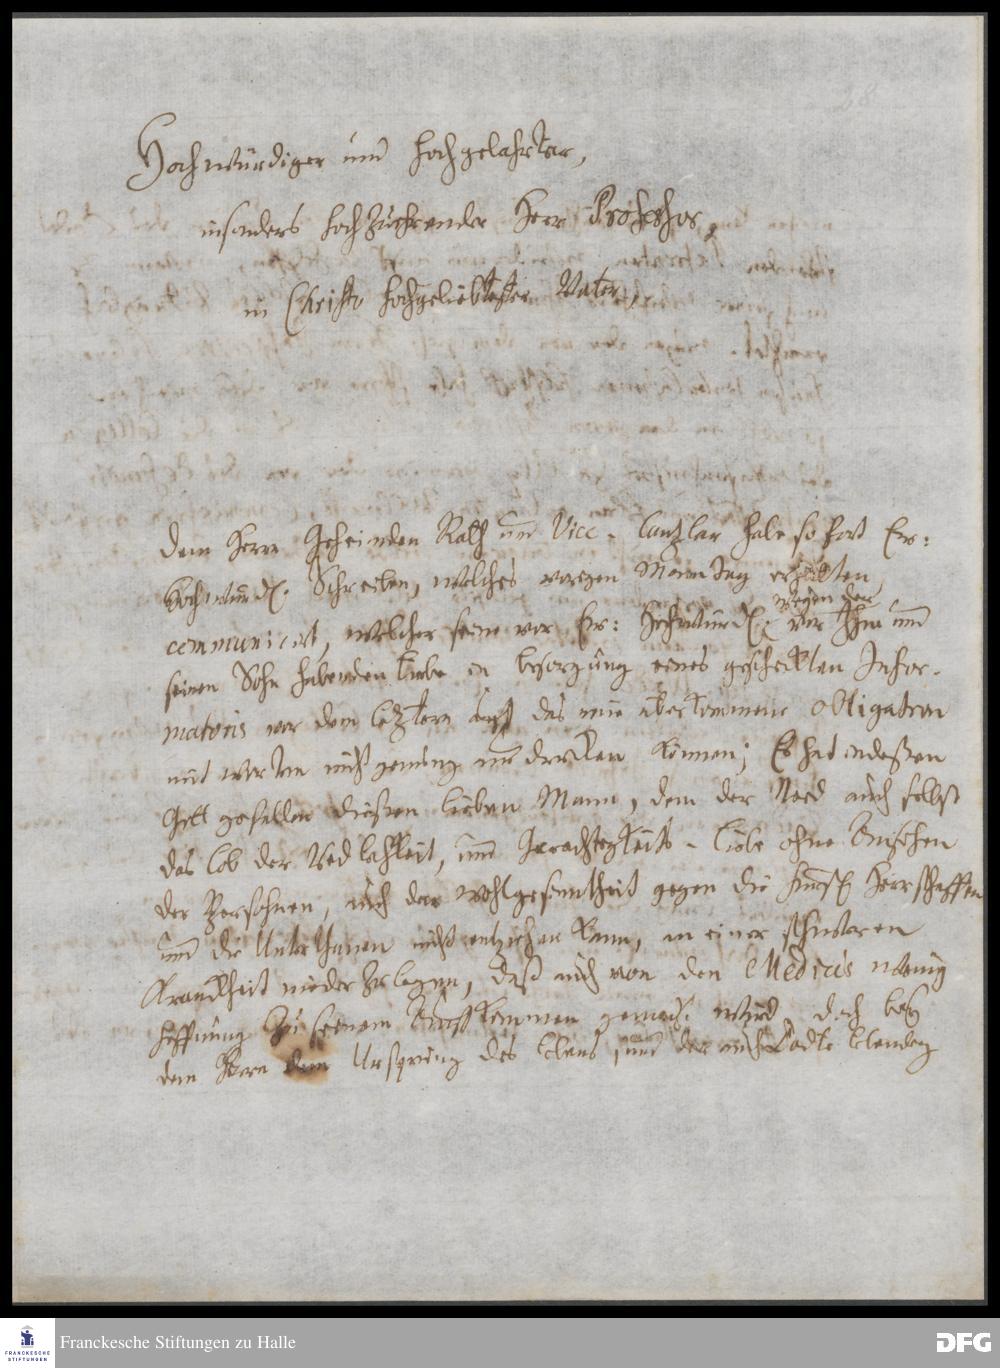 Hochwürdiger und hochgelahrter,
insonders hochzuehrender Herr Professor,
in Christo hochgeliebtester Vater,
Dem Herrn Geheimden Rath und Vice-Cantzlar habe sofort Ew:
Hochwürd. Schreiben, welches vorigen Montag erhalten
wegen der
communicirt, welcher seine vor Ew: Hochwürd. vor Ihn und
seinen Sohn habenden Liebe in besorgung eines geschickten Infor-
matoris vor dem letztern auf das neue überkommene Obligation
mit Worten nicht genung ausdrucken können; Es hat indeßen
Gott gefallen dießen lieben Mann, dem der Neid auch selbst
das Lob der Redlichkeit, und Gerechtigkeits-Liebe ohne Ansehen
der Persohnen, auch der wohlgesinntheit gegen die Herrschafften
und die Unterthanen nicht entziehen kann, an einer schweren
Kranckheit nieder zu legen, daß auch von den Medicis wenig
hoffnung zu seinem Aufkommen gemacht wird, doch bey
dem Herrn dem Ursprung des Lebens, und der auch Todte lebendig
Franckesche Stiftungen zu Halle
FRANCKESCHE
STIFTUNGEN
DFG